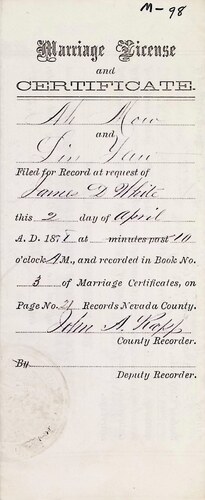 M-98
Marriage License
and
CERTIFICATE.
Ah Mow
and
Sin Yaw
Filed for Record at request of
James D White
this 2 day of April
A. D. 187 at minutes past 10
o'clock A M., and recorded in Book No.
3 of Marriage Certificates, on
Page No. 21 Records Nevada County.
John A. Rapp
County Recorder.
By
Deputy Recorder.